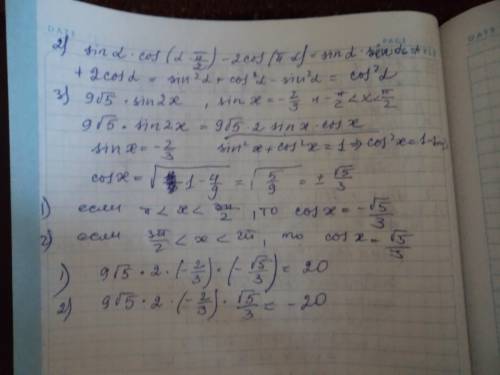 DATE
PAGE
2) sin α · cos (α - π/2) - 2cos (π - α) = sin α · sin α +
+ 2cos α = sin²α + cos²α - sin²α = cos²α
3) 9√5 · sin 2x , sin x = -2/3 и -π/2 < x < π/2
9√5 · sin 2x = 9√5 · 2 sin x · cos x
sin x = -2/3 sin²x + cos²x = 1 ⇒ cos²x = 1 -
cos x = √(1 - 4/9) = √(5/9) = ± √5/3
1) если π < x < 3π/2, то cos x = -√5/3
2) если 3π/2 < x < 2π, то cos x = √5/3
1) 9√5 · 2 · (-2/3) · (-√5/3) = 20
2) 9√5 · 2 · (-2/3) · √5/3 = -20